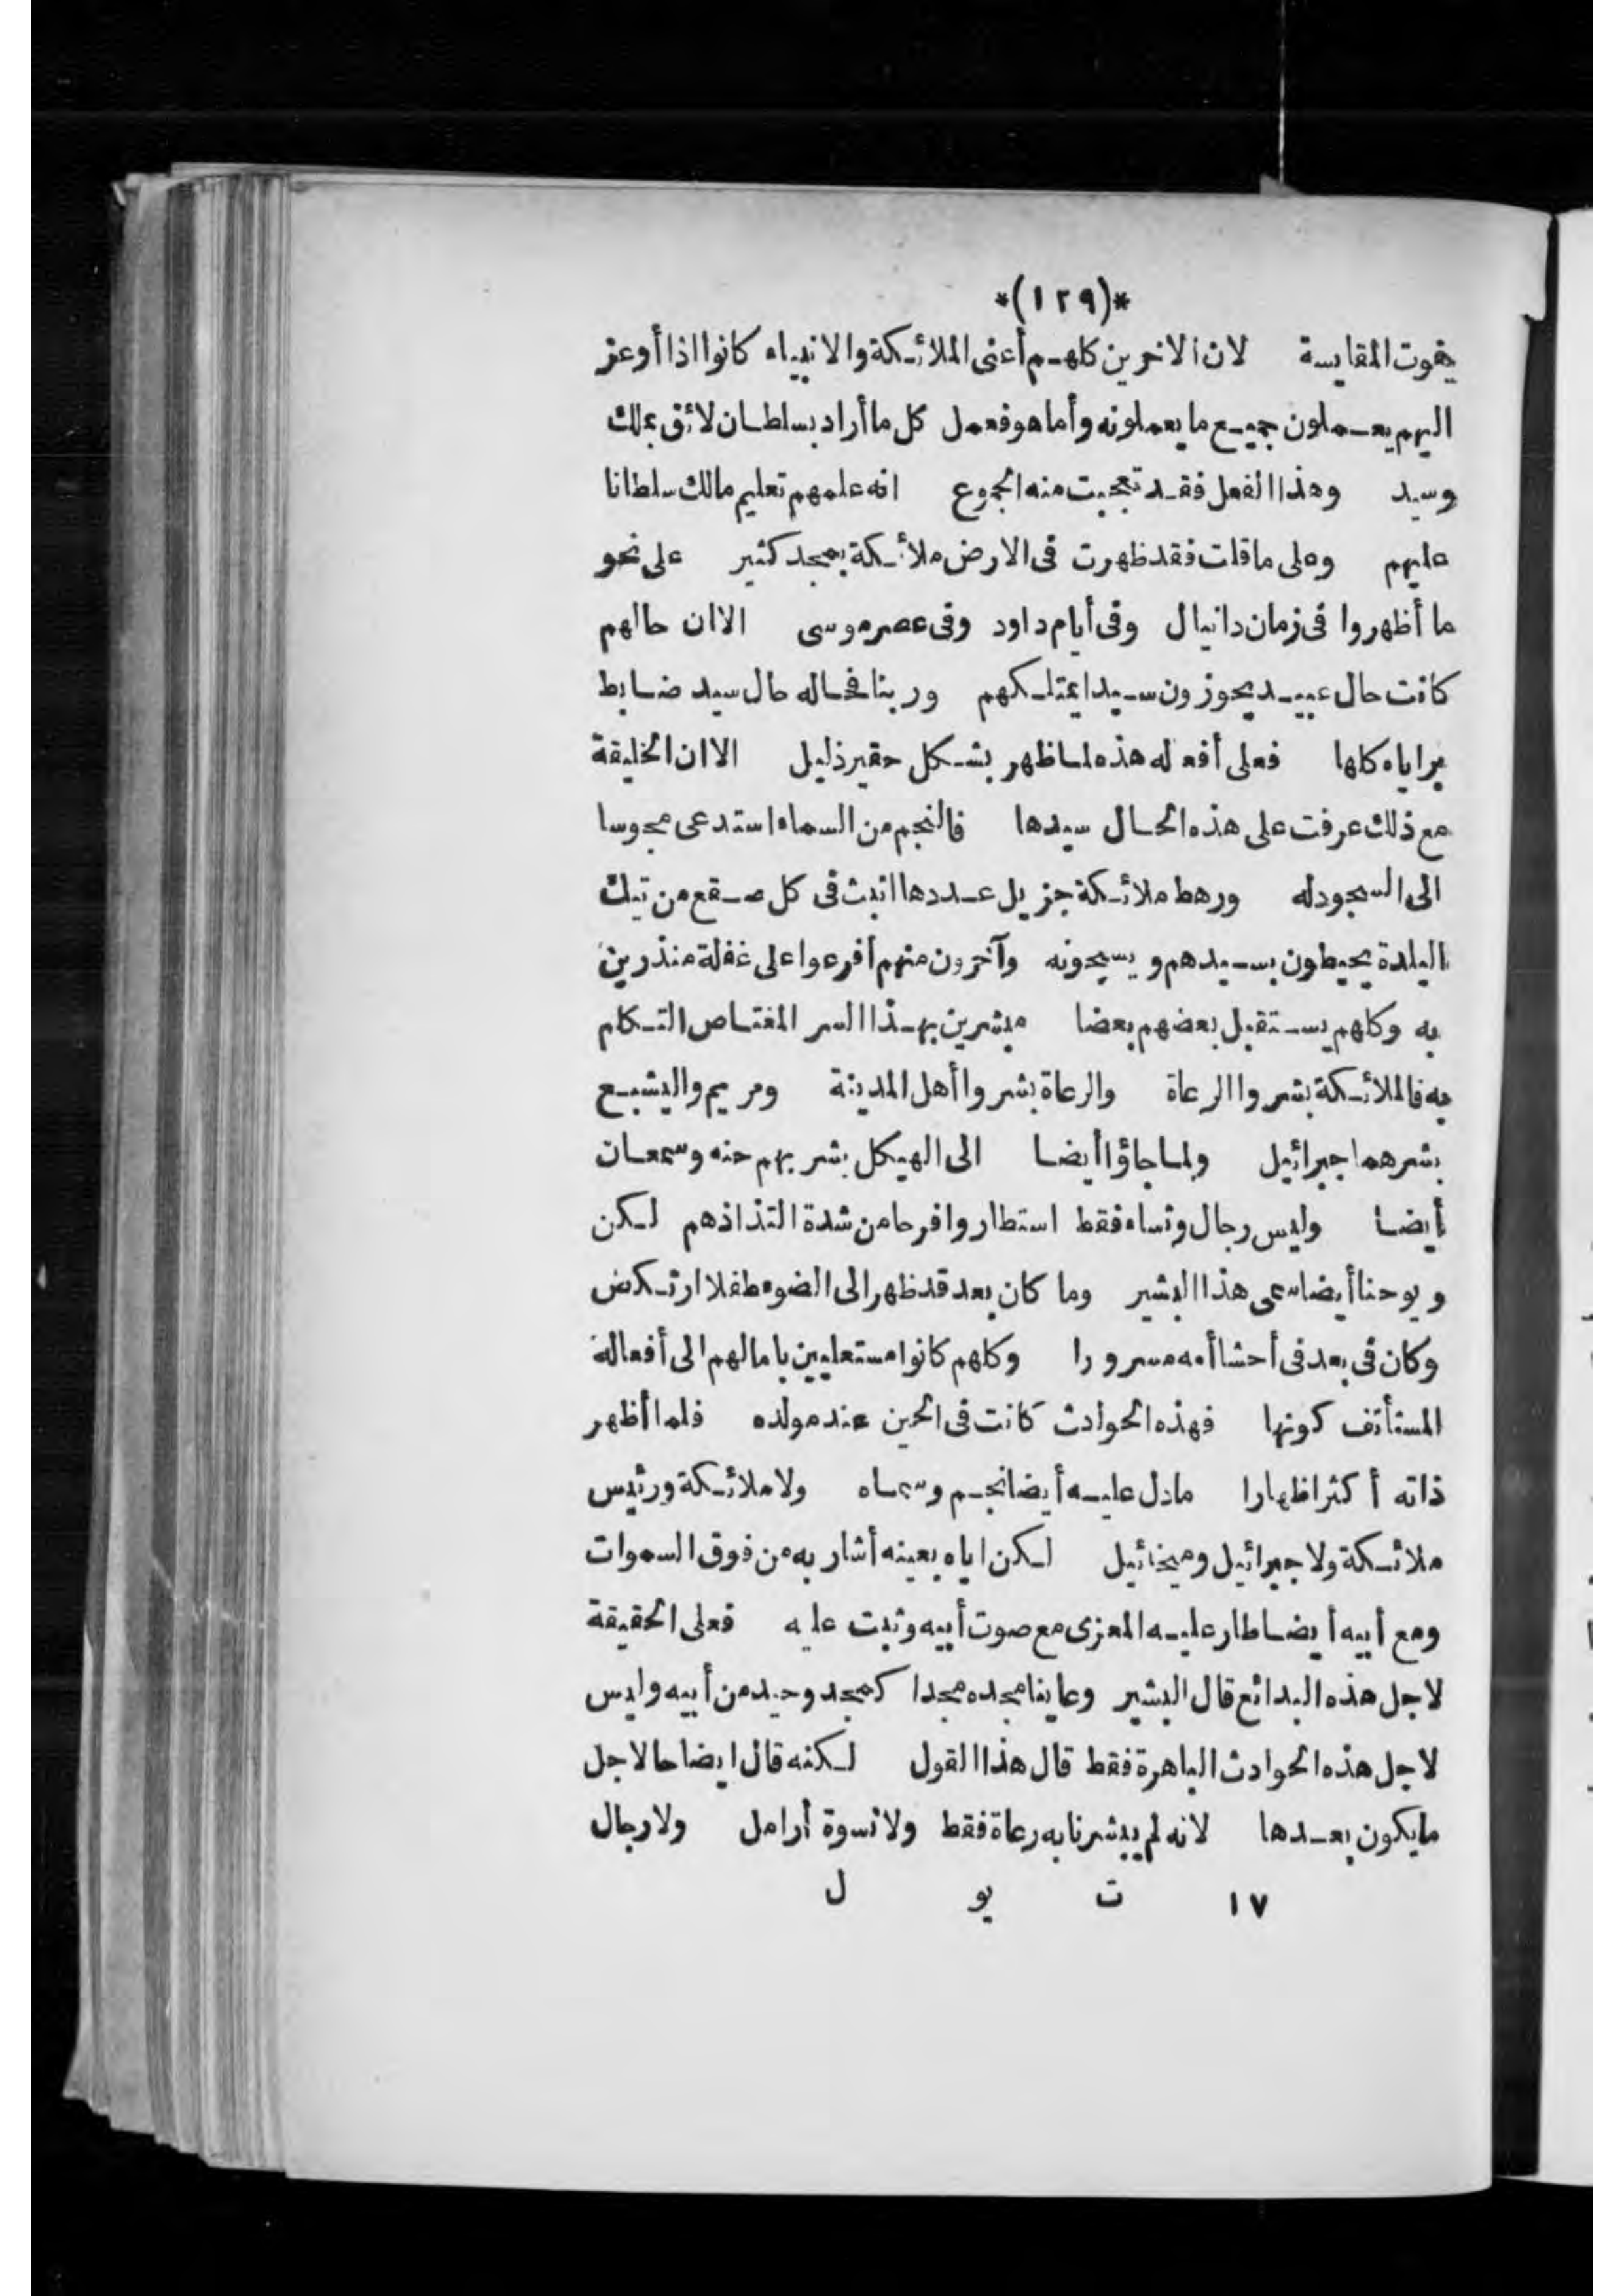 *(١٢٩)*
يفوت المقايسة لان الاخرين كلهم أعنى الملائكة والانبياء كانوا اذا أوعز
اليهم يعملون جميع ما يعملونه وأما هو فعمل كل ما أراد بسلطان لائق بملك
وسيد وهذا الفعل فقد تعجبت منه الجموع انه علمهم تعليم مالك سلطانا
عليهم وعلى ما قلت فقد ظهرت فى الارض ملائكة بمجد كثير على نحو
ما أظهروا فى زمان دانيال وفى أيام داود وفى عصر موسى الا ان حالهم
كانت حال عبيد يحوزون سيدا يمتلكهم وربنا فحاله حال سيد ضابط
براياه كلها فعلى أفعاله هذه لما ظهر بشكل حقير ذليل الا ان الخليقة
مع ذلك عرفت على هذه الحال سيدها فالنجم من السماء استدعى مجوسا
الى السجود له ورهط ملائكة جزيل عددها انبث فى كل صقع من تيك
البلدة يحيطون بسيدهم ويسبحونه وآخرون منهم أفرعوا على غفلة منذرين
به وكلهم يستقبل بعضهم بعضا مبشرين بهذا السر المغتاص التكلم
به فالملائكة بشروا الرعاة والرعاة بشروا أهل المدينة ومريم واليشبع
بشرهما جبرائيل ولما جاؤا أيضا الى الهيكل بشر بهم حنه وسمعان
أيضا وليس رجال ونساء فقط استطاروا فرحا من شدة التذاذهم لكن
ويوحنا أيضا سمى هذا البشير وما كان بعد قد ظهر الى الضوء طفلا ارتكض
وكان فى بعد فى أحشا أمه مسرورا وكلهم كانوا مستعليين بامالهم الى أفعاله
المستأنف كونها فهذه الحوادث كانت فى الحين عند مولده فلما أظهر
ذاته أكثر اظهارا ما دل عليه أيضا نجم وسماه ولا ملائكة ورئيس
ملائكة ولا جبرائيل وميخائيل لكن اياه بعينه أشار به من فوق السموات
ومع أبيه أيضا طار عليه المعزى مع صوت أبيه وثبت عليه فعلى الحقيقة
لاجل هذه البدائع قال البشير وعاينا مجده مجدا كمجد وحيد من أبيه وليس
لاجل هذه الحوادث الباهرة فقط قال هذا القول لكنه قال ايضاحا لاجل
ما يكون بعدها لانه لم يبشرنا به رعاة فقط ولا نسوة أرامل ولا رجال
١٧ ت يو ل